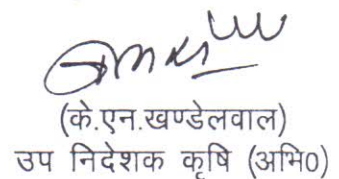 (के.एन.खण्डेलवाल)
उप निदेशक कृषि (अभि0)